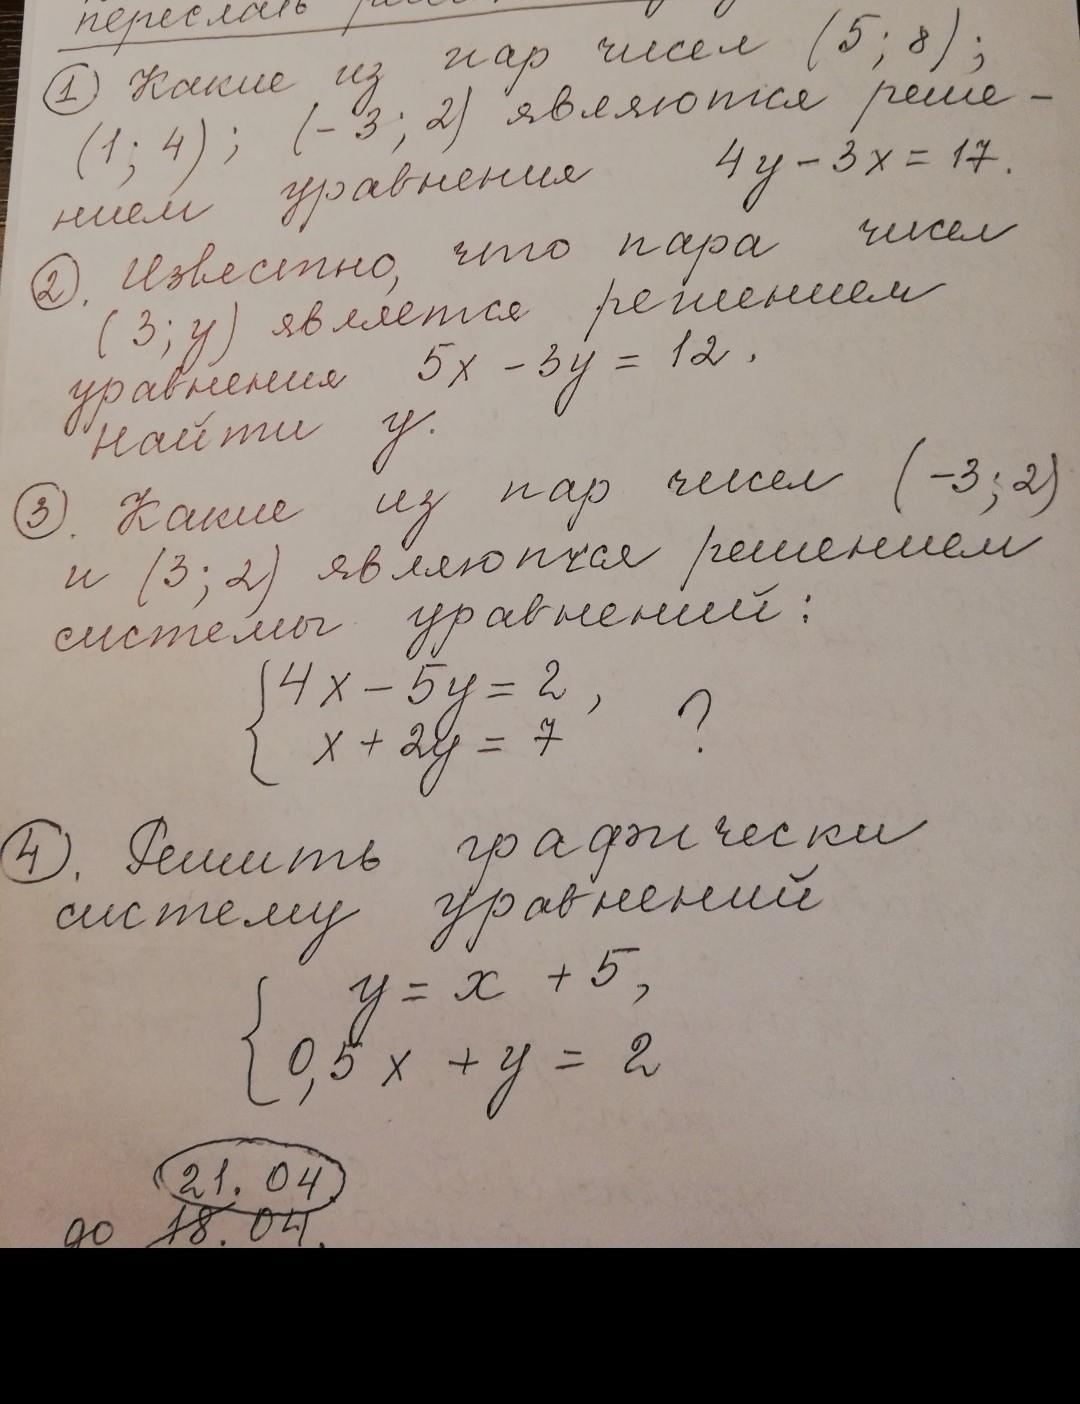 переслать
① Какие из пар чисел (5; 8);
(1; 4); (-3; 2) являются реше-
нием уравнения 4y - 3x = 17.
②. Известно, что пара чисел
(3; y) является решением
уравнения 5x - 3y = 12.
найти y.
③. Какие из пар чисел (-3; 2)
и (3; 2) являются решением
системы уравнений:
4x - 5y = 2,
x + 2y = 7 ?
④. Решить графически
систему уравнений
y = x + 5,
0,5x + y = 2
21.04
до 18.04.